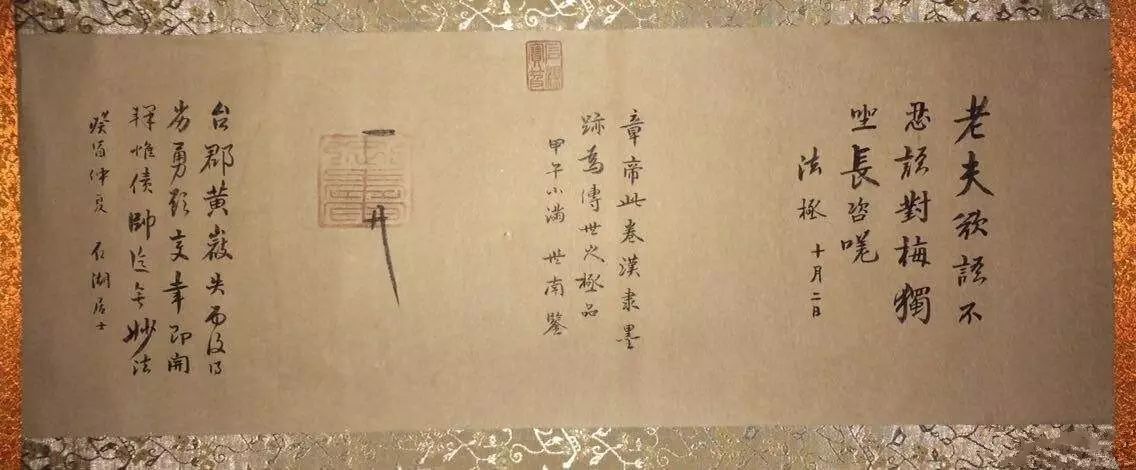 老夫欲語不
忍語對梅獨
坐長咨嗟
法極 十月二日
章帝此卷漢隶墨
跡為傳世之極品
甲午小滿 世南鑒
御書
台郡黄巖失而復得
劣勇彰交幸即開
釋惟債帥 妙法
癸酉仲夏 石湖居士